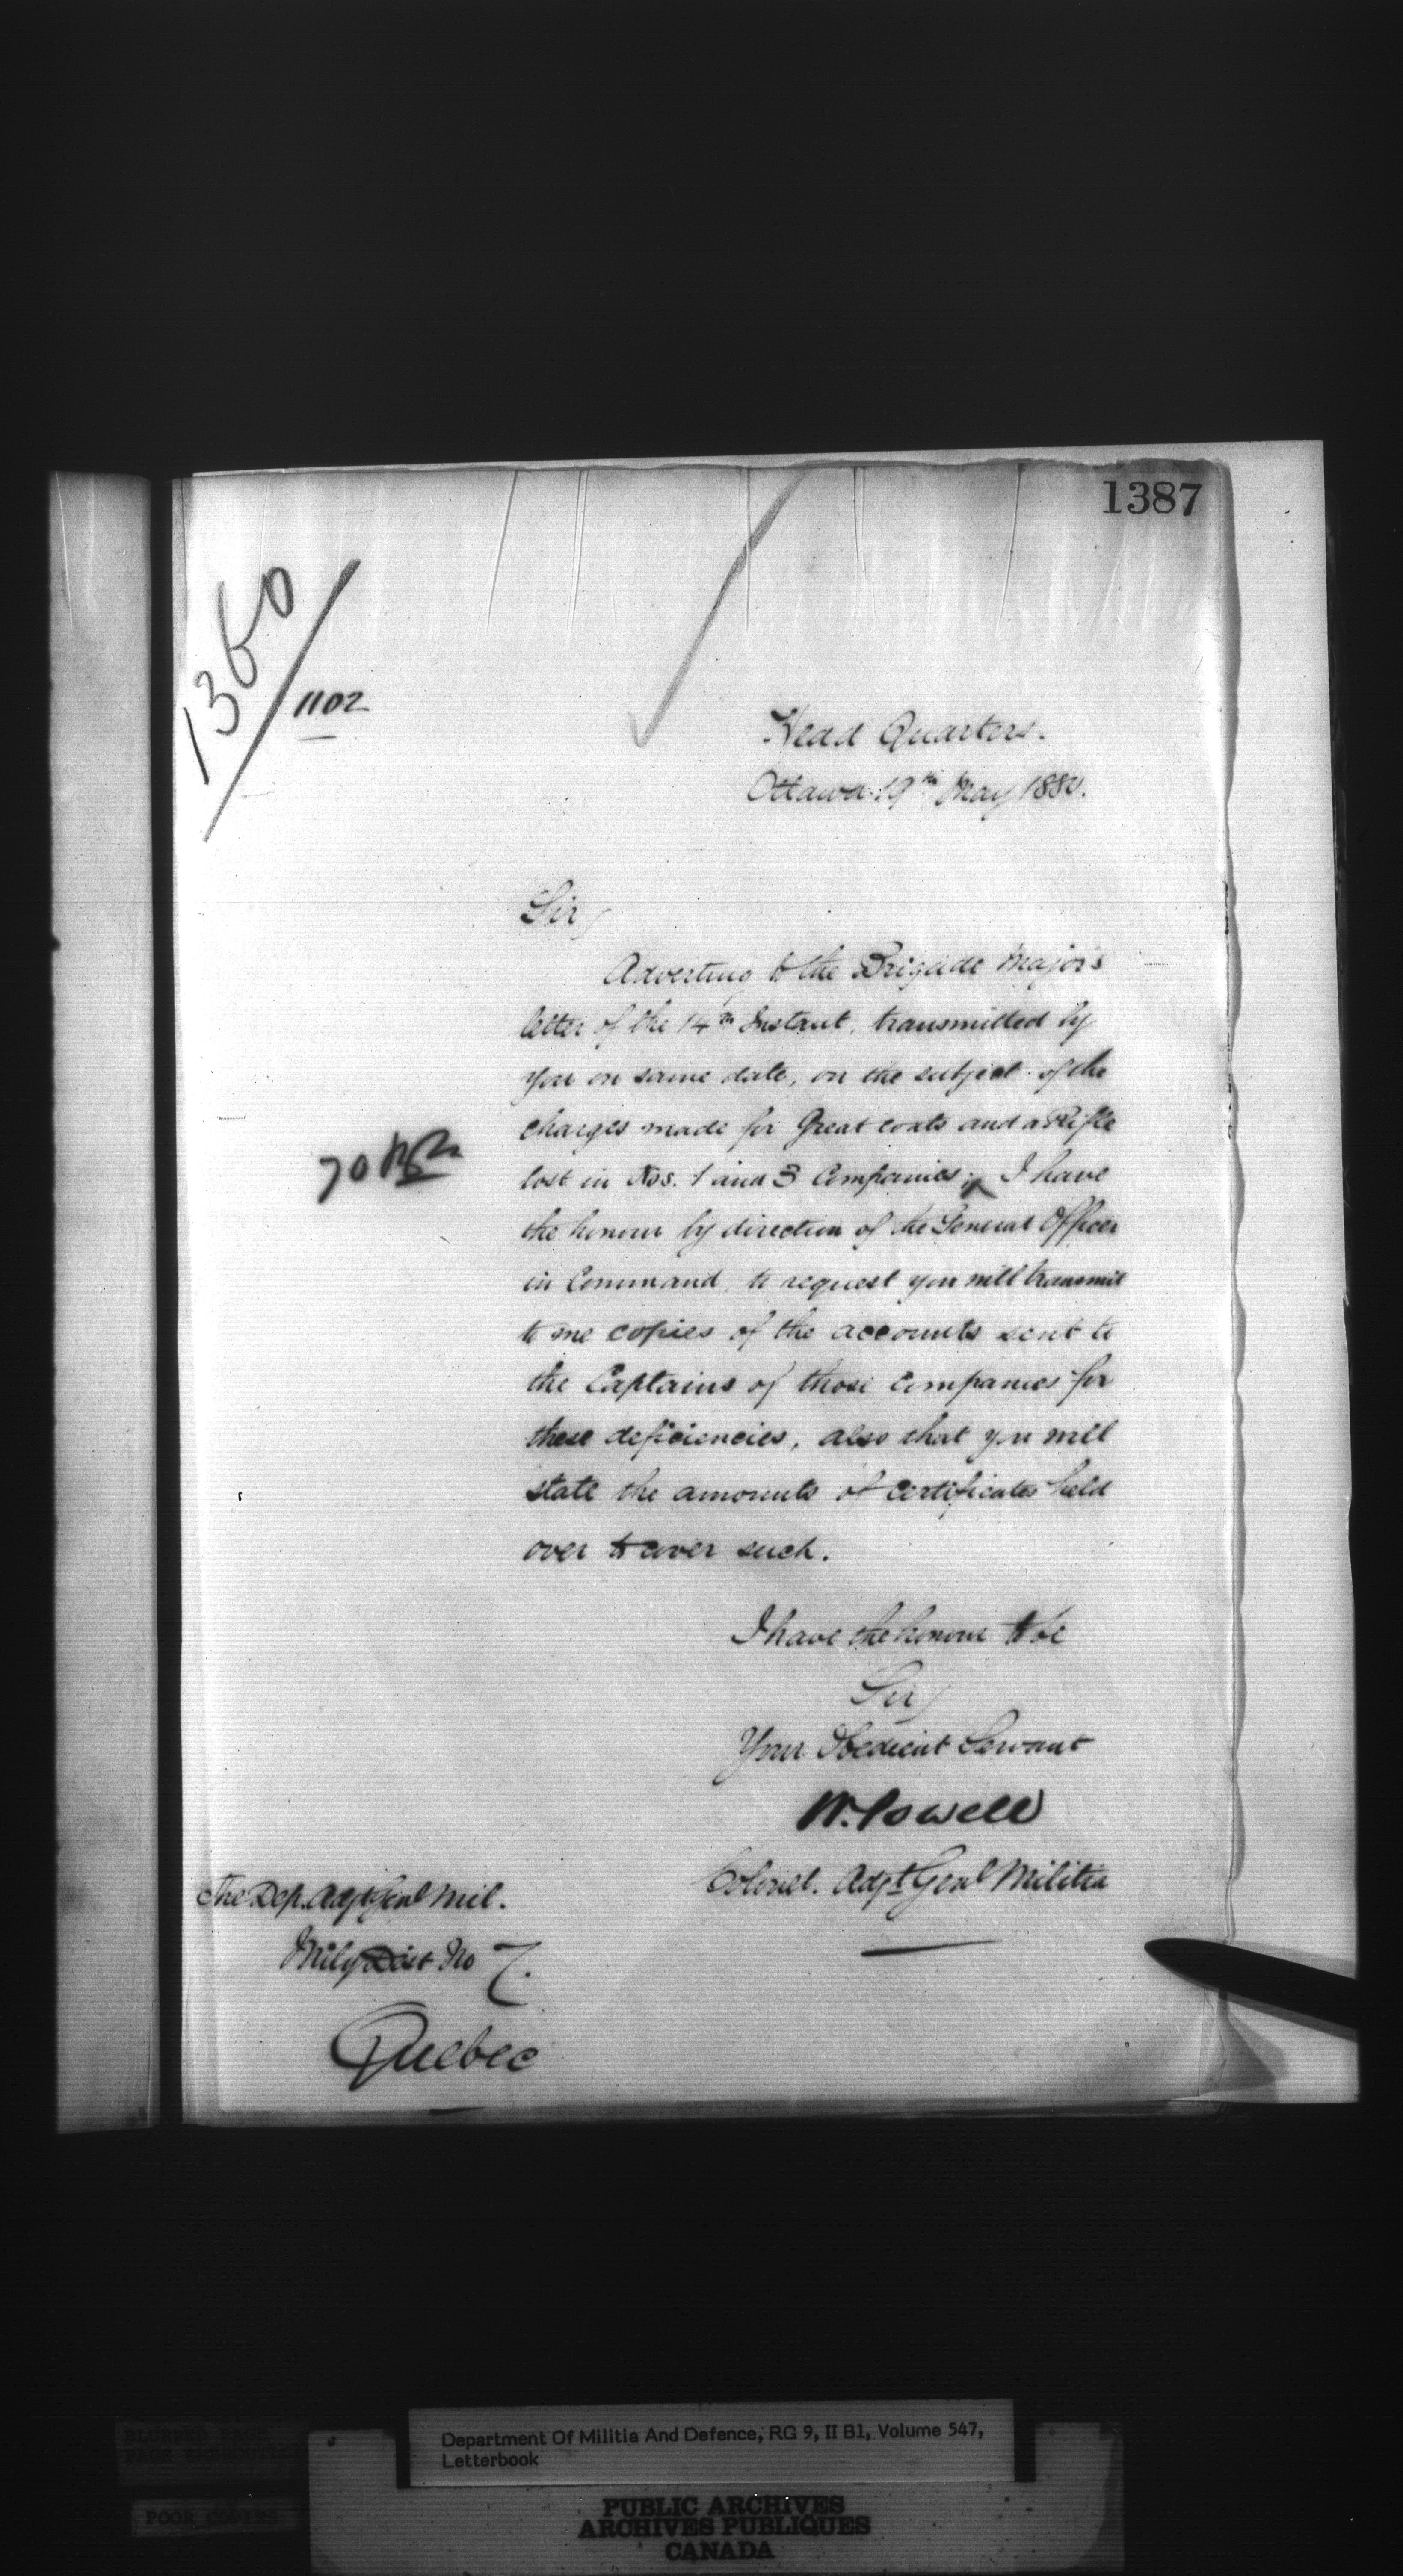 1387
1360
1102
Head Quarters.
Ottawa 19th May 1880.
Sir,
Adverting to the Brigade Major's
letter of the 14th Instant, transmitted by
you on same date, on the subject of the
charges made for Great coats and a Rifle
lost in Nos. 1 and 3 Companies, I have
70 Bn
the honour by direction of the General Officer
in Command, to request you will transmit
to me copies of the accounts sent to
the Captains of those companies for
these deficiencies, also that you will
state the amounts of certificates held
over to cover such.
I have the honour to be
Sir,
Your Obedient Servant
W. Powell
Colonel. Adjt Genl Militia
The Dep. Adjt Genl Mil.
Mily Dist No 7.
Quebec
BLURRED PAGE
POOR COPIES
Department Of Militia And Defence, RG 9, II B1, Volume 547,
Letterbook
PUBLIC ARCHIVES
ARCHIVES PUBLIQUES
CANADA